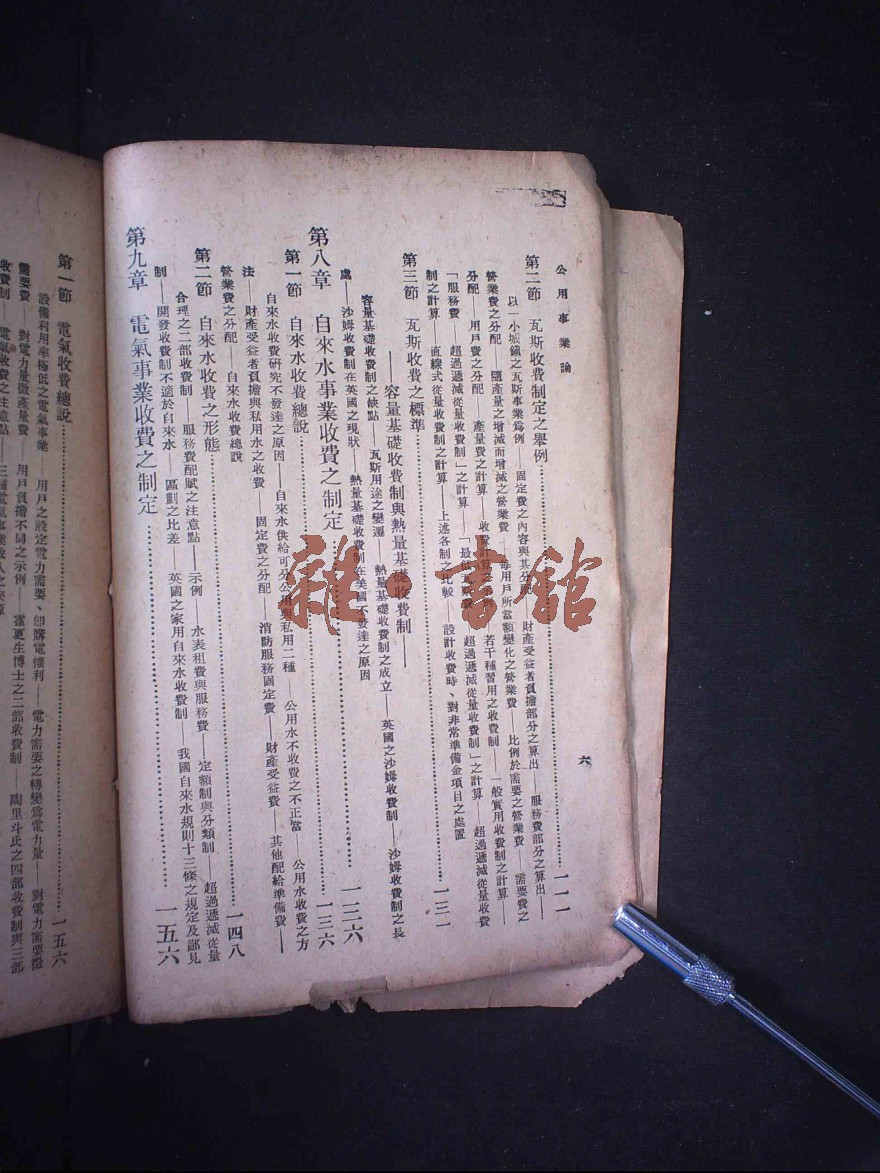 公用事業論
六
第二節 瓦斯收費制定之舉例……一一一
以一小城鎮之瓦斯事業爲例——固定費之內容與其分配——財產受益者負擔部分之算出——服務費部分之算出——
營業費之分配——隨產量之增減而增減之營業費——每用戶所當額變化之營業費——比例於需要之營業費——需要費之
分配——用戶費之分配——產量費之計算——收費計算之示例——若干種習用之收費制——一般實用收費制之計算——
「服務費——超過遞減從量收費制」之計算——「最低瓦斯費——超過遞減從量收費制」之計算——超過遞減從量收費
制之計算——直線式從量收費制之計算——上述各制之比較——設計收費時、對非常準備金項目之處置
第三節 瓦斯收費之標準……一三一
——容量基礎收費制與熱量基礎收費制——
容量基礎收費制之缺點——瓦斯用途之變遷——熱量基礎收費制之成立——英國之沙姆收費制——沙姆收費制之長
處——沙姆收費制在英國之現狀——熱量基礎收費制在美國不發達之原因
第八章 自來水事業收費之制定……一三六
第一節 自來水收費總說……一三六
自來水收費研究不發達之原因——自來水供給可分公用與私用二種——公用水不收費之不正當——公用水收費之方
法——財產受益者負擔與私用水之收費——固定費之分配——消防服務固定費——財產受益費——其他配給準備費——
營業費之分配——自來水收費總說
第二節 自來水收費之形態……一四八
合理之二部收費制——服務費配賦之注意點——示例——水表租費與服務費——定額制與分類制——超過遞減從量
制——開發收費制不適於自來水——區劃之比差——英國之家用自來水收費制——我國自來水規則十三條之規定及鄙見
第九章 電氣事業收費之制定……一五六
第一節 電氣收費總說……一五六
設備利用率極低之電氣事業——用戶之設定電力需要、卽購電權利——電力需要之轉變爲電力量——對電力需要徵
需要費——對電力量徵產量費——用戶負擔不同之示例——霍更生博士之二部收費制——陶里斗氏之四部收費制與三部
收費制——電氣收費之注意點——三種電氣事業收入之來源
雜·書館